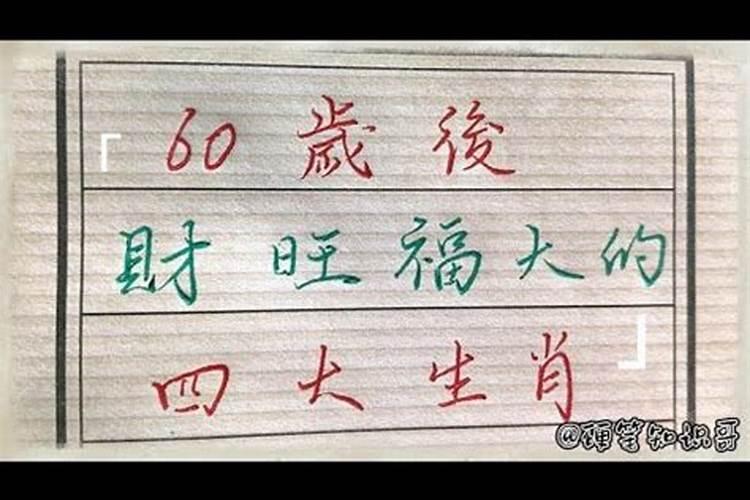 「60歲後
財旺福大的
四大生肖」
@硬笔知识哥